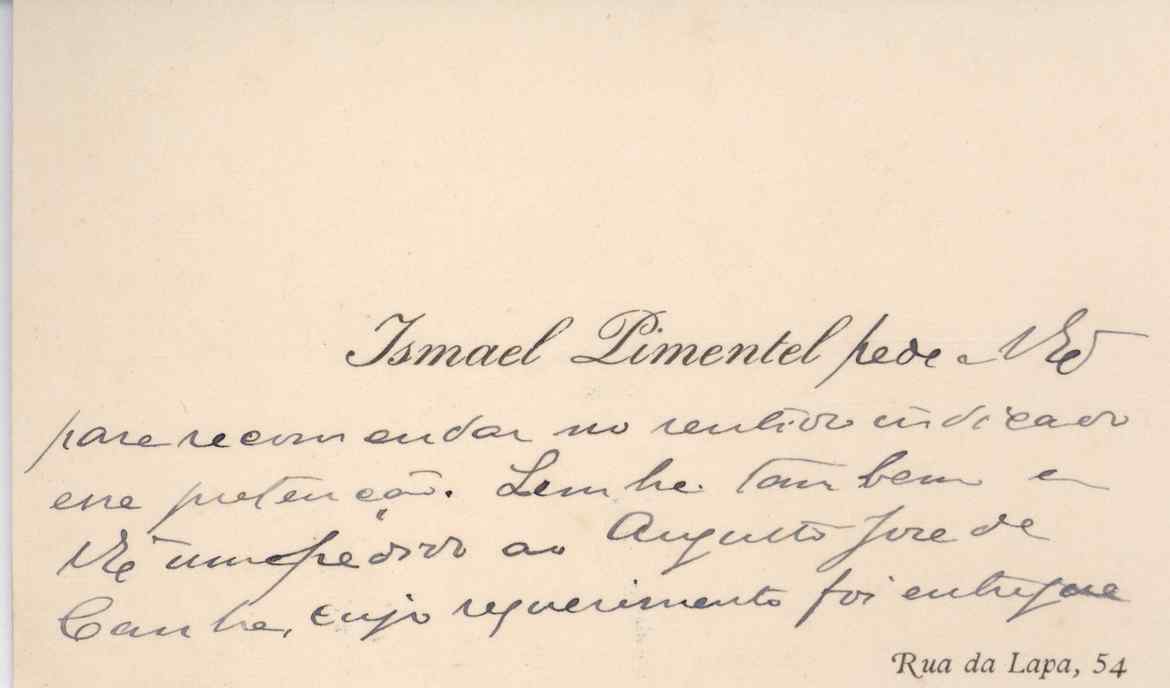 Ismael Pimentel pede a V. Ex.ª
para recomendar no sentido indicado
esse pretenção. Lembra tambem a
V. Ex.ª um pedido ao Augusto José da
Cunha, cujo requerimento foi entregue
Rua da Lapa, 54